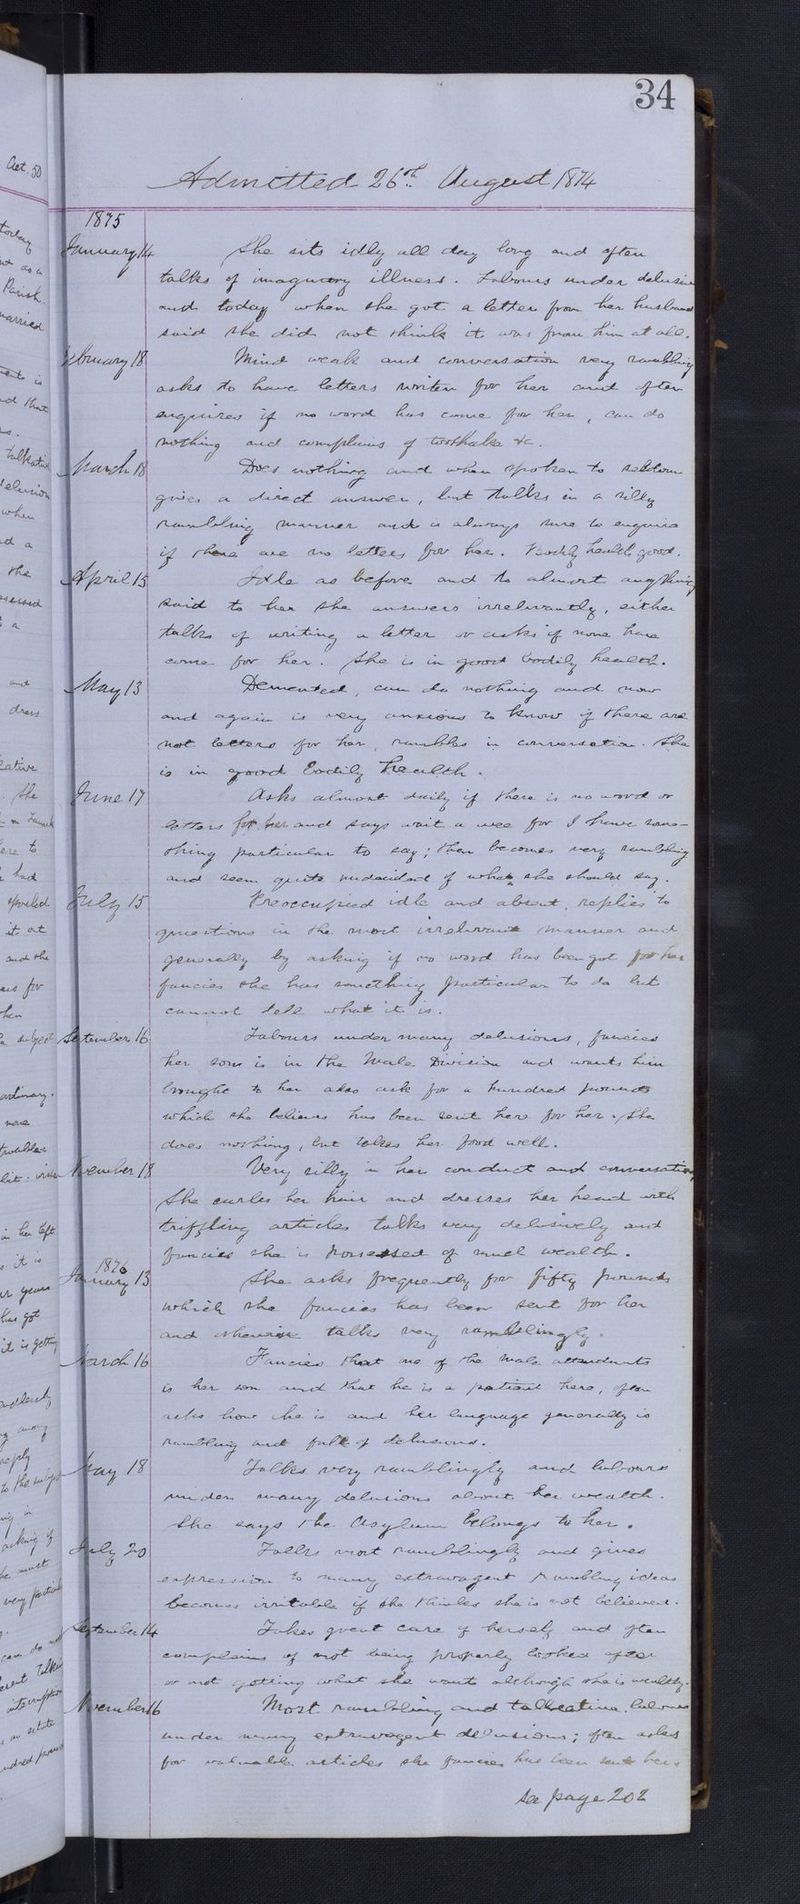 34
Admitted 26th August 1874
1875
January 14 She sits idly all day long and often
talks of imaginary illness. Labours under delusions
and today when she got a letter from her husband
said she did not think it was from him at all.
February 18 Mind weak and conversation very rambling
asks to have letters writen for her and often
enquires if no word has come for her, can do
nothing and complains of toothake &c.
March 18 Does nothing and when spoken to seldom
gives a direct answer, but talks in a silly
rambling manner and is always sure to enquire
if there are no letters for her. Bodily health good.
April 15 Idle as before and to almost anything
said to her she answers irrelevantly, either
talks of writing a letter or asks if none have
come for her. She is in good bodily health.
May 13 Demented, can do nothing and now
and again is very anxious to know if there are
not letters for her, rambles in conversation. She
is in good bodily health.
June 17 Asks almost daily if there is no word or
letters for her and says wait a wee for I have some-
thing particular to say; then becomes very rambling
and seem quite undecided of what she should say.
July 15 Preoccupied idle and absent, replies to
questions in the most irrelevant manner and
generally by asking if no word has been got for her
fancies she has something particular to do but
cannot tell what it is.
September 16 Labours under many delusions, fancies
her son is in the Male Division and wants him
brought to her also ask for a hundred pounds
which she believes has been sent here for her. She
does nothing, but takes her food well.
November 18 Very silly in her conduct and conversation,
She curles her hair and dresses her head with
triffling articles talks very delusively and
fancies she is possessed of much wealth.
1876
January 13 She asks frequently for fifty pounds
which she fancies has been sent for her
and otherwise talks very ramblingly.
March 16 Fancies that one of the male attendants
is her son and that he is a patient here, often
asks how he is and her language generally is
rambling and full of delusions.
May 18 Talks very ramblingly and labours
under many delusions about her wealth.
She says the Asylum belongs to her.
July 20 Talks most ramblingly and gives
expression to many extravagent rambling ideas
becomes irritable if she thinks she is not believed.
September 14 Takes great care of herself and often
complains of not being properly looked after
or not getting what she wants although she is wealthy.
November 16 Most rambling and talkative, labours
under many extravagent delusions; often asks
for valuable articles she fancies has been sent here
see page 202